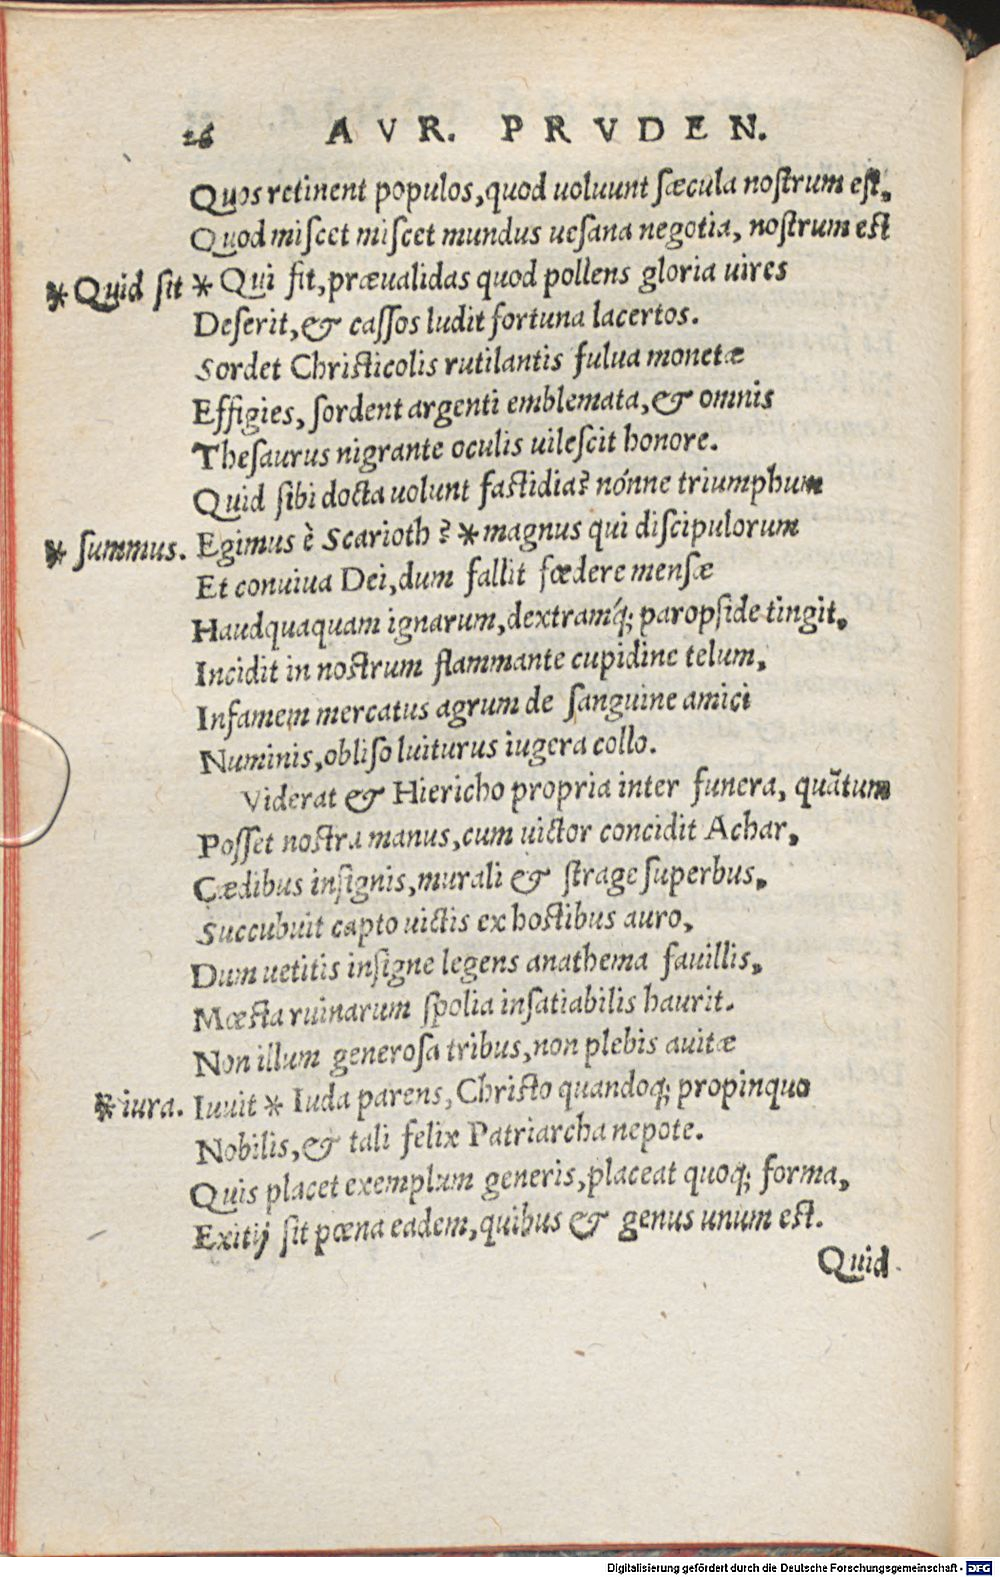 26 AVR. PRVDEN.
Quos retinent populos, quod uoluunt sæcula nostrum est,
Quod miscet miscet mundus uesana negotia, nostrum est
* Quid sit * Qui fit, præualidas quod pollens gloria uires
Deserit, & cassos ludit fortuna lacertos.
Sordet Christicolis rutilantis fulua monetæ
Effigies, sordent argenti emblemata, & omnis
Thesaurus nigrante oculis uilescit honore.
Quid sibi docta uolunt fastidia? nónne triumphum
* summus. Egimus è Scarioth? * magnus qui discipulorum
Et conuiua Dei, dum fallit fœdere mensæ
Haudquaquam ignarum, dextramq́; paropside tingit,
Incidit in nostrum flammante cupidine telum,
Infamem mercatus agrum de sanguine amici
Numinis, obliso luiturus iugera collo.
Viderat & Hiericho propria inter funera, quātum
Posset nostra manus, cum uictor concidit Achar,
Cædibus insignis, murali & strage superbus,
Succubuit capto uictis ex hostibus auro,
Dum uetitis insigne legens anathema fauillis,
Mœsta ruinarum spolia insatiabilis haurit.
Non illum generosa tribus, non plebis auitæ
* iura. Iuuit * Iuda parens, Christo quandoq; propinquo
Nobilis, & tali felix Patriarcha nepote.
Quis placet exemplum generis, placeat quoq; forma,
Exitij sit pœna eadem, quibus & genus unum est.
Quid
Digitalisierung gefördert durch die Deutsche Forschungsgemeinschaft - DFG